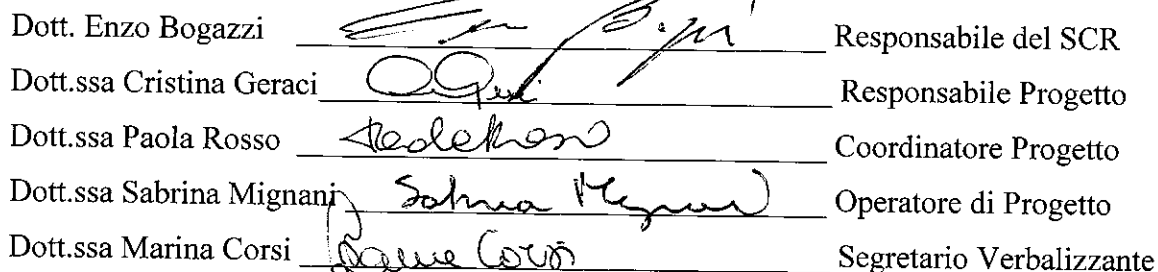 Dott. Enzo Bogazzi Responsabile del SCR
Dott.ssa Cristina Geraci Responsabile Progetto
Dott.ssa Paola Rosso Coordinatore Progetto
Dott.ssa Sabrina Mignani Sabrina Mignani Operatore di Progetto
Dott.ssa Marina Corsi Corsi Segretario Verbalizzante